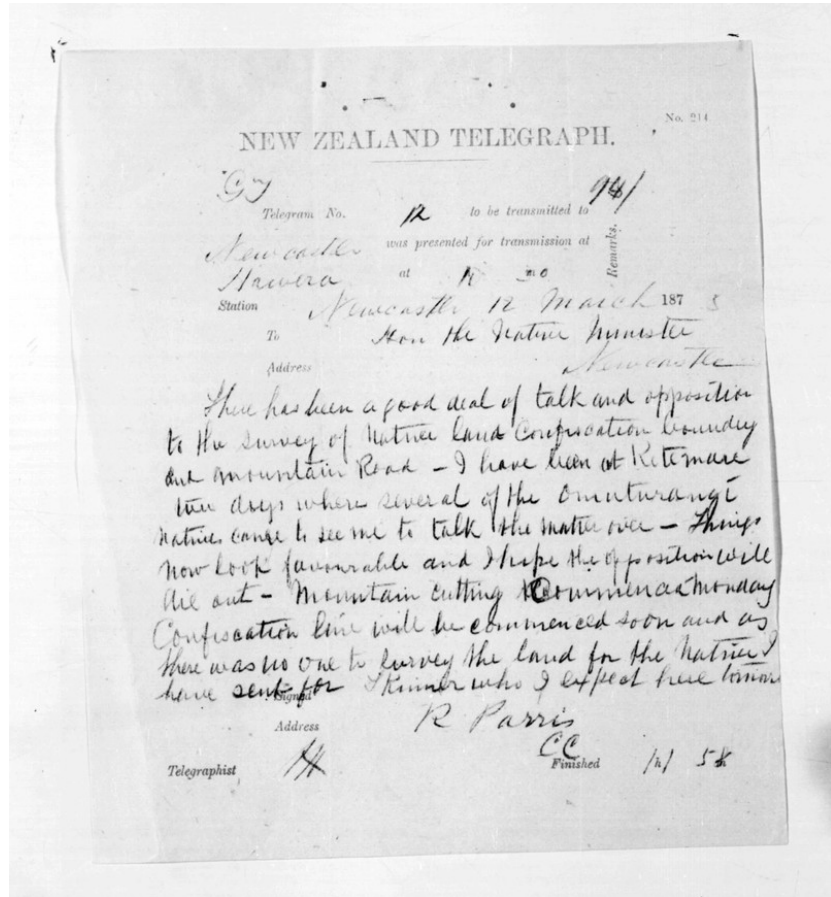 No. 214
NEW ZEALAND TELEGRAPH.
941
Telegram No. 12 to be transmitted to
Newcastle was presented for transmission at
Remarks.
Hawera at
Station Newcastle 12 March 1873
To Hon the Native Minister
Address Newcastle
There has been a good deal of talk and opposition
to the survey of Native land Confiscation boundry
and mountain Road - I have been at Ketemare
two days where several of the Omuturangi
natives came to see me to talk the matter over - Things
now look favourable and I hope the opposition will
die out - Mountain cutting Commenced Monday
Confiscation line will be commenced soon and as
there was no one to survey the land for the Natives I
have sent for Skinner who I expect here tomorw
Signed
Address R Parris
CC
Telegraphist Finished